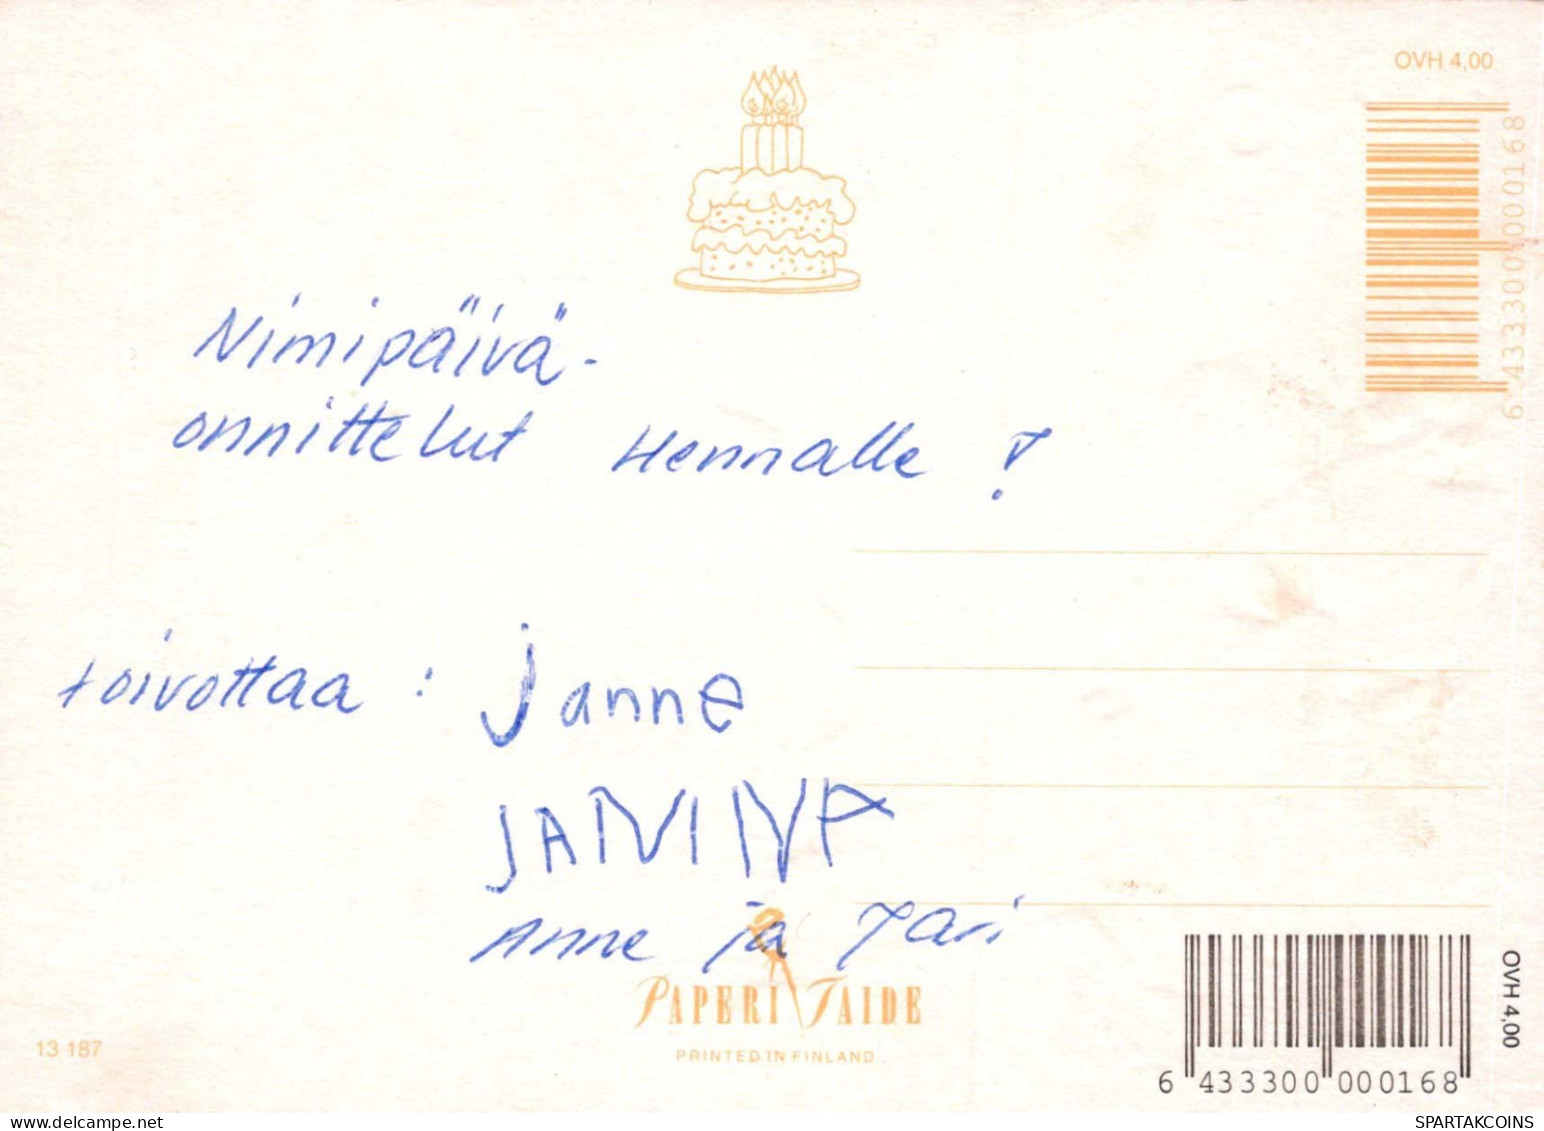 OVH 4,00
6 433300 000168
Nimipäivä-
onnittelut Hennalle !
toivottaa : Janne
JANINA
Anne ja Jari
PAPERI TAIDE
PRINTED IN FINLAND
13 187
6 433300 000168
OVH 4,00
delcampe.net
SPARTAKCOINS